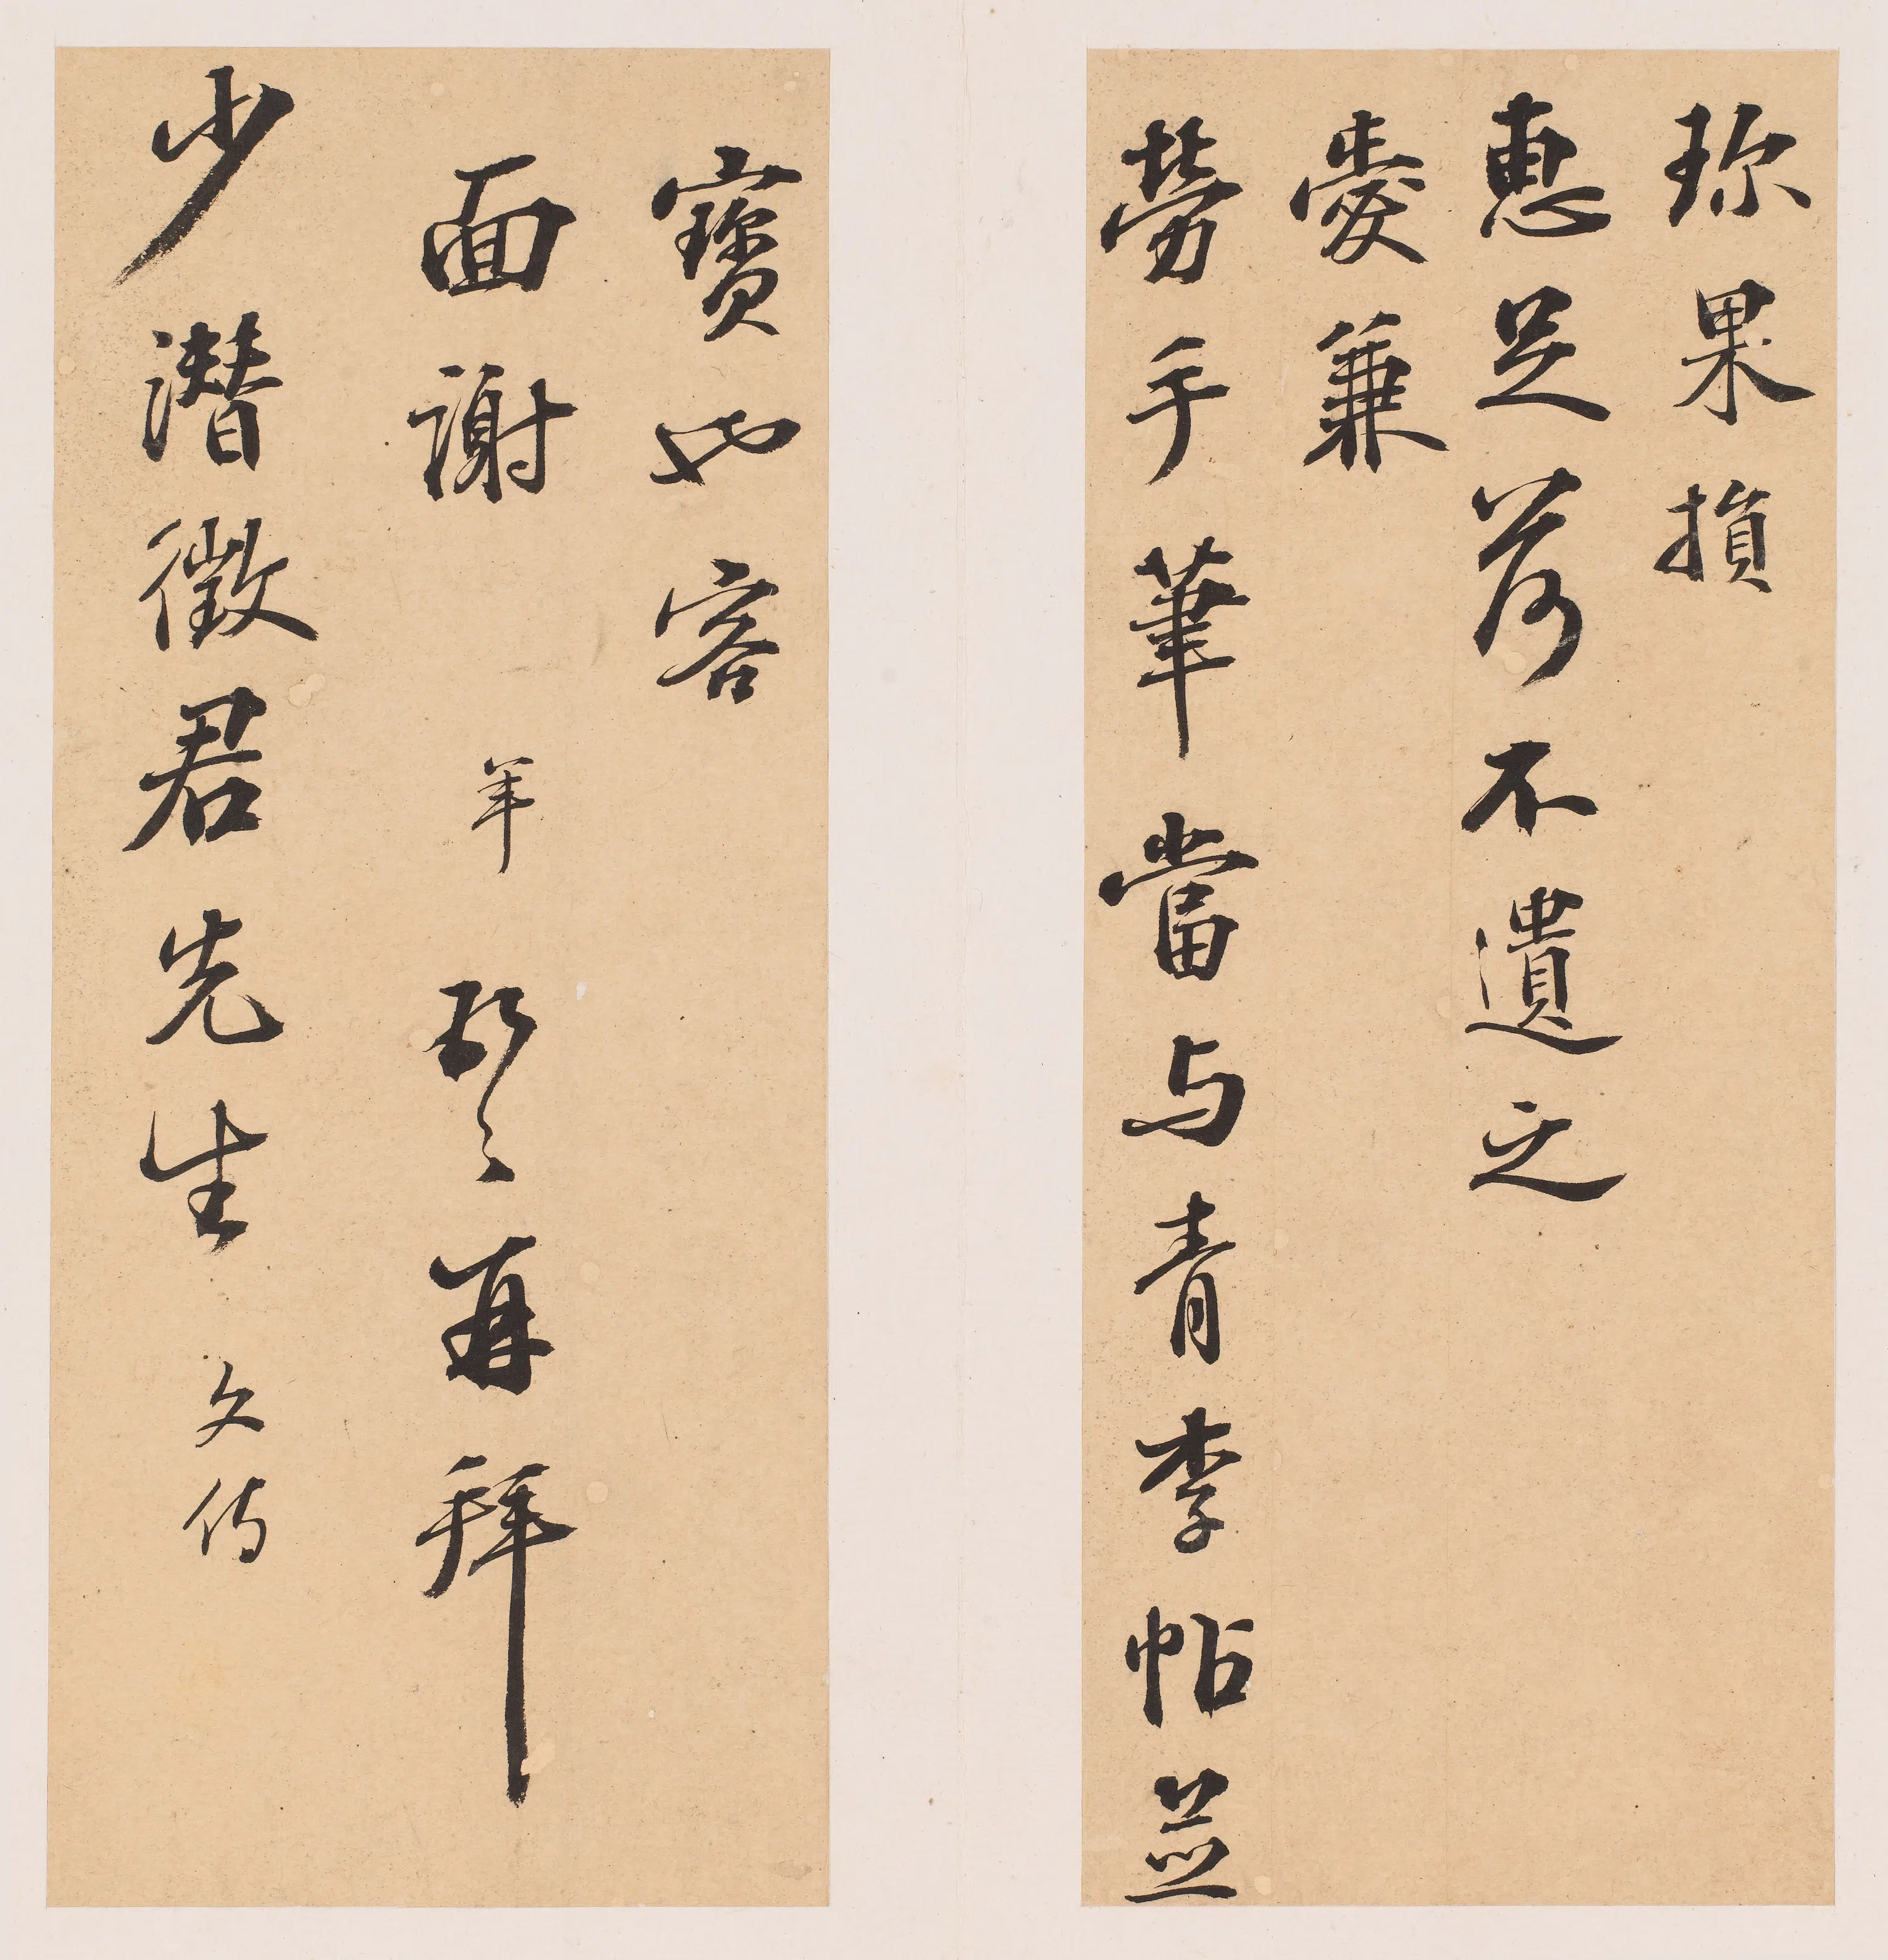 珎果損
惠足荷不遺之
愛兼
勞手筆當与青李帖並
寶也容
面謝 頓首再拜
少潛徵君先生 文侍